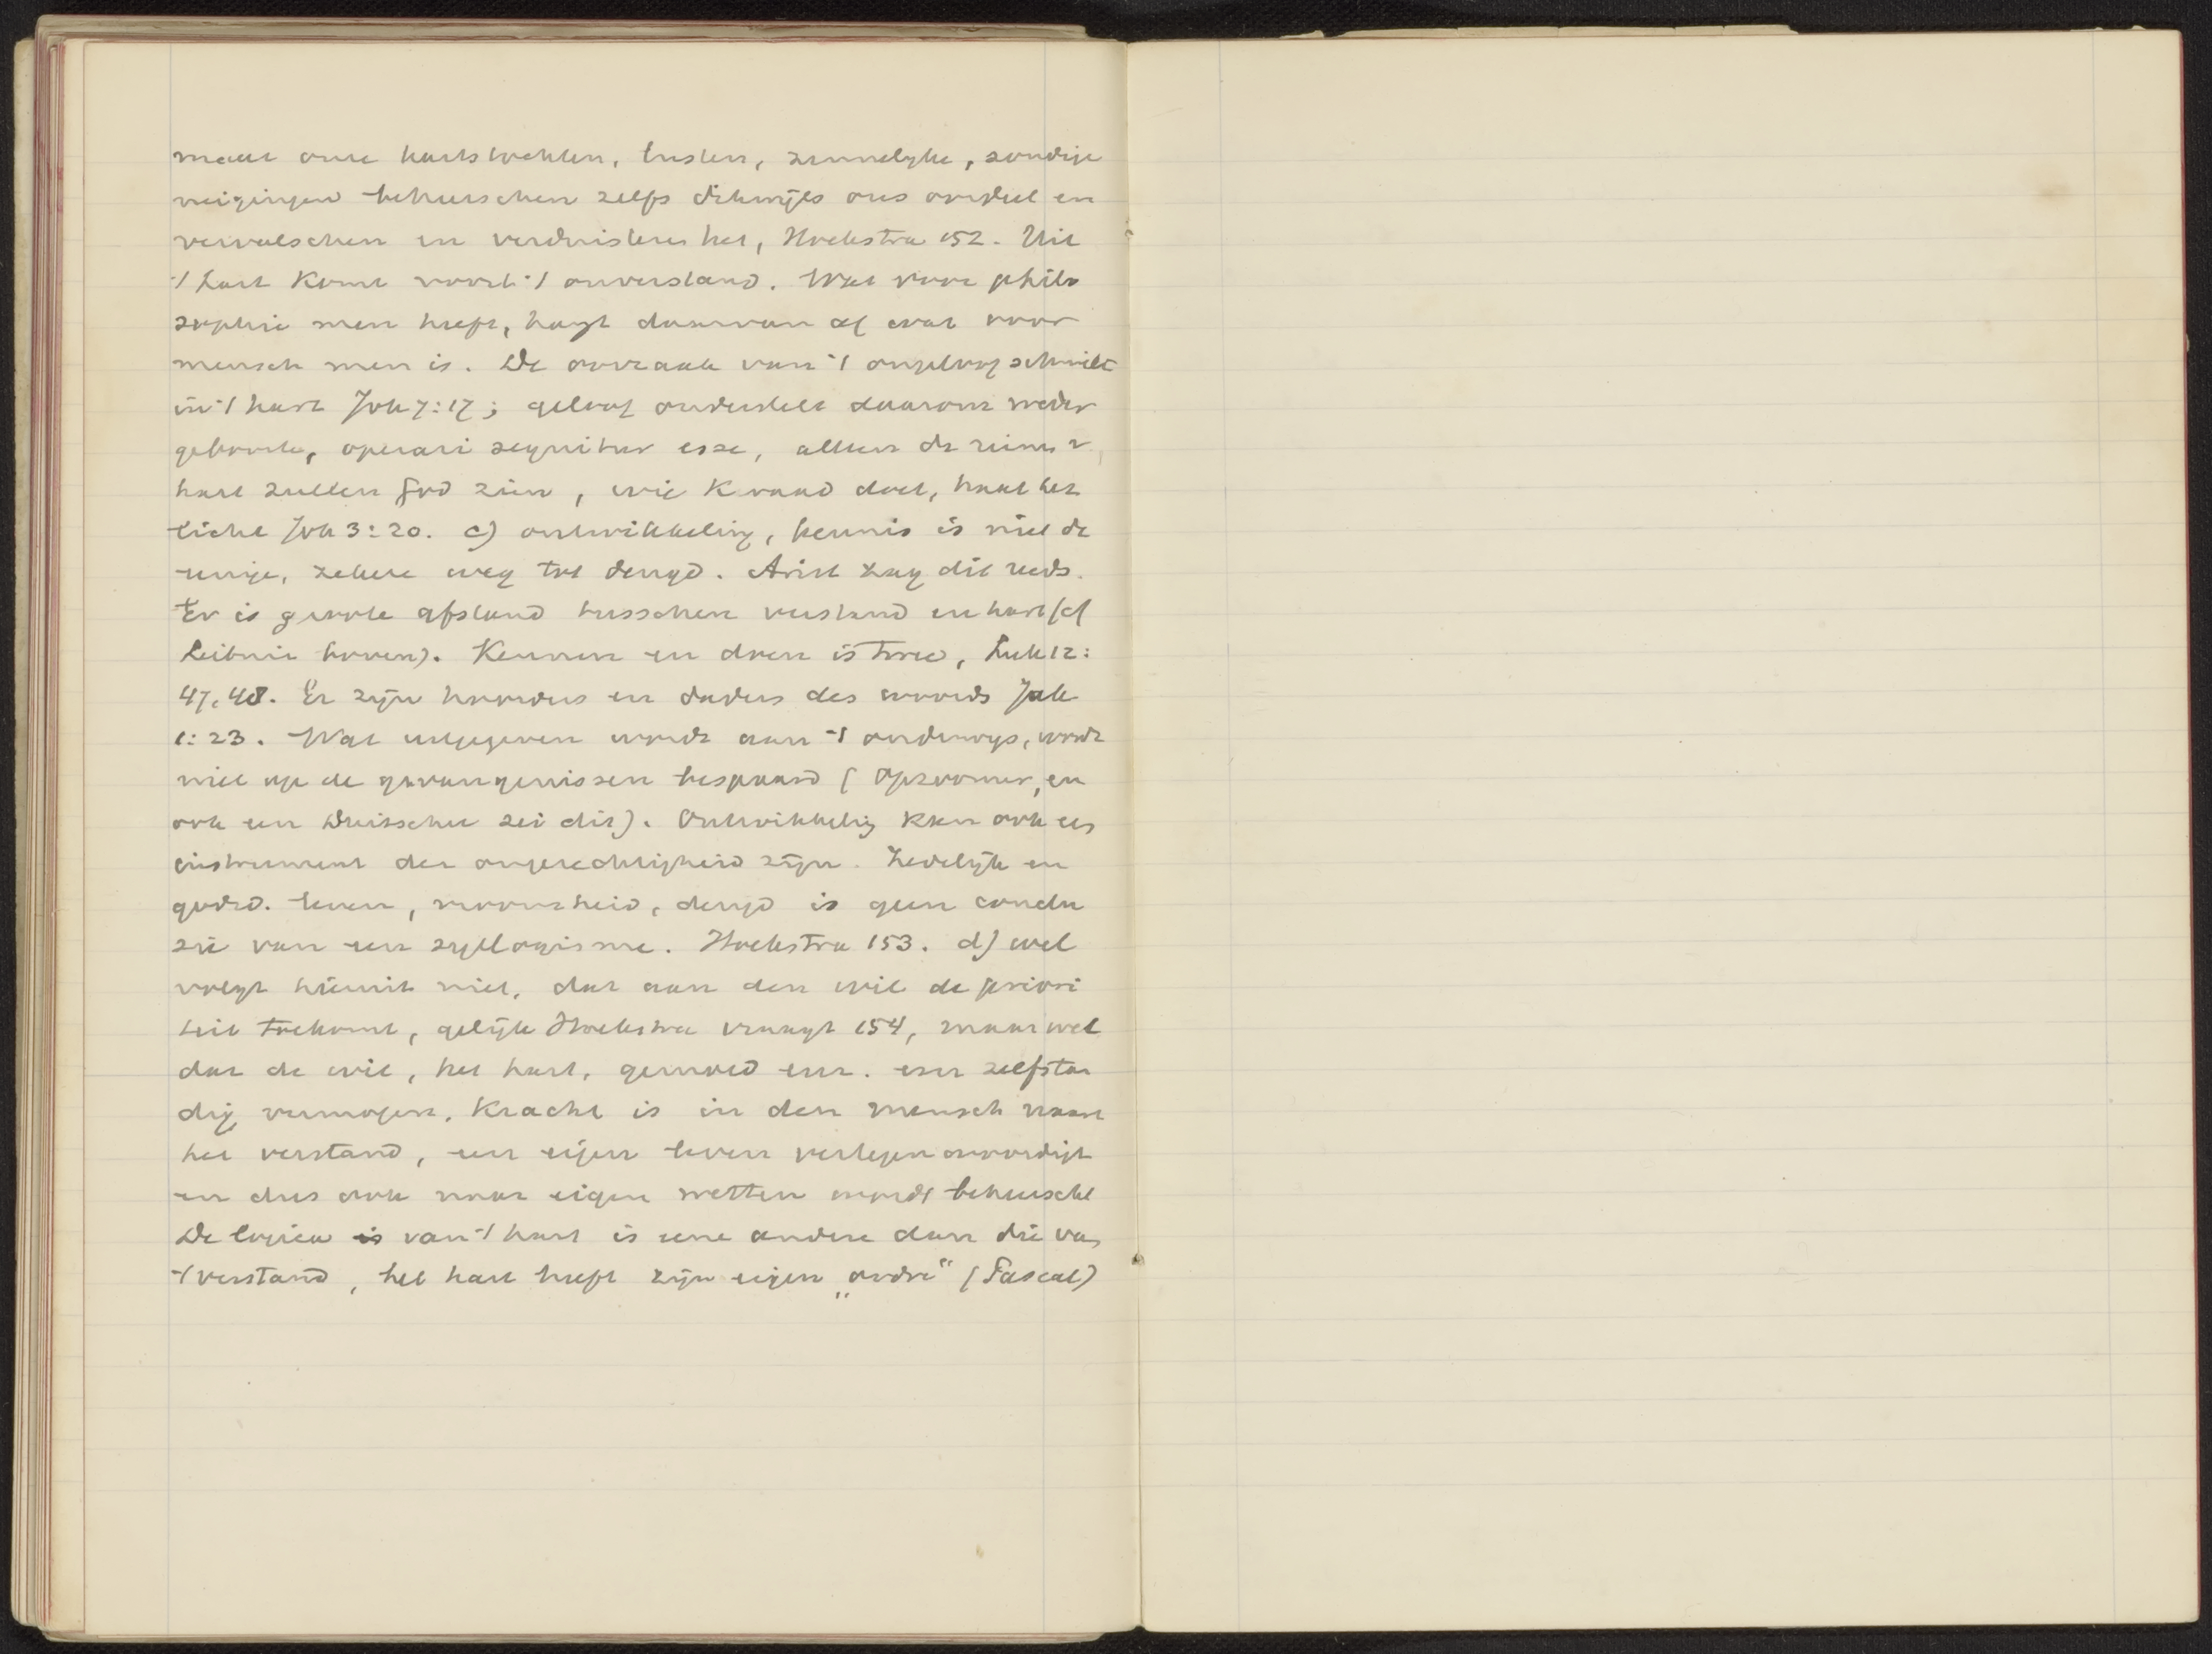 maar onze hartstochten, lusten, zinnelijke, zondige
neigingen beheerschen zelfs dikwijls ons oordeel en
vervalschen en verduisteren het, Hoekstra 152. Uit
't hart komt voort 't onverstand. Wat voor philo
sophie men heeft, hangt daarvan af wat voor
mensch men is. De oorzaak van 't ongeloof schuilt
in 't hart Joh 7:17; geloof onderstelt daarom weder
geboorte, operari sequitur esse, alleen de reinen v
hart zullen God zien, wie kwaad doet, haat het
licht Joh 3:20. c) ontwikkeling, kennis is niet de
eenige, zekere weg tot deugd. Arist zag dit reeds.
Er is groote afstand tusschen verstand en hart (cf
Leibniz boven). Kennen en doen is twee, Luk 12:
47, 48. Er zijn hoorders en daders des woords Jak
1:23. Wat uitgegeven wordt aan 't onderwijs, wordt
niet op de gevangenissen bespaard (Opzoomer, en
ook een Duitscher zei dit). Ontwikkeling kan ook een
instrument der ongerechtigheid zijn. Zedelijk en
godsd. leven, vroomheid, deugd is geen conclu
sie van een syllogisme. Hoekstra 153. d) wel
volgt hieruit niet, dat aan den wil de priori
teit toekomt, gelijk Hoekstra vraagt 154, maar wel
dat de wil, het hart, gemoed enz. een zelfstan
dig vermogen, kracht is in den mensch naast
het verstand, een eigen leven vertegenwoordigt
en dus ook naar eigen wetten wordt beheerscht
De logica is van 't hart is eene andere dan die van
't verstand, het hart heeft zijn eigen „ordre" (Pascal)